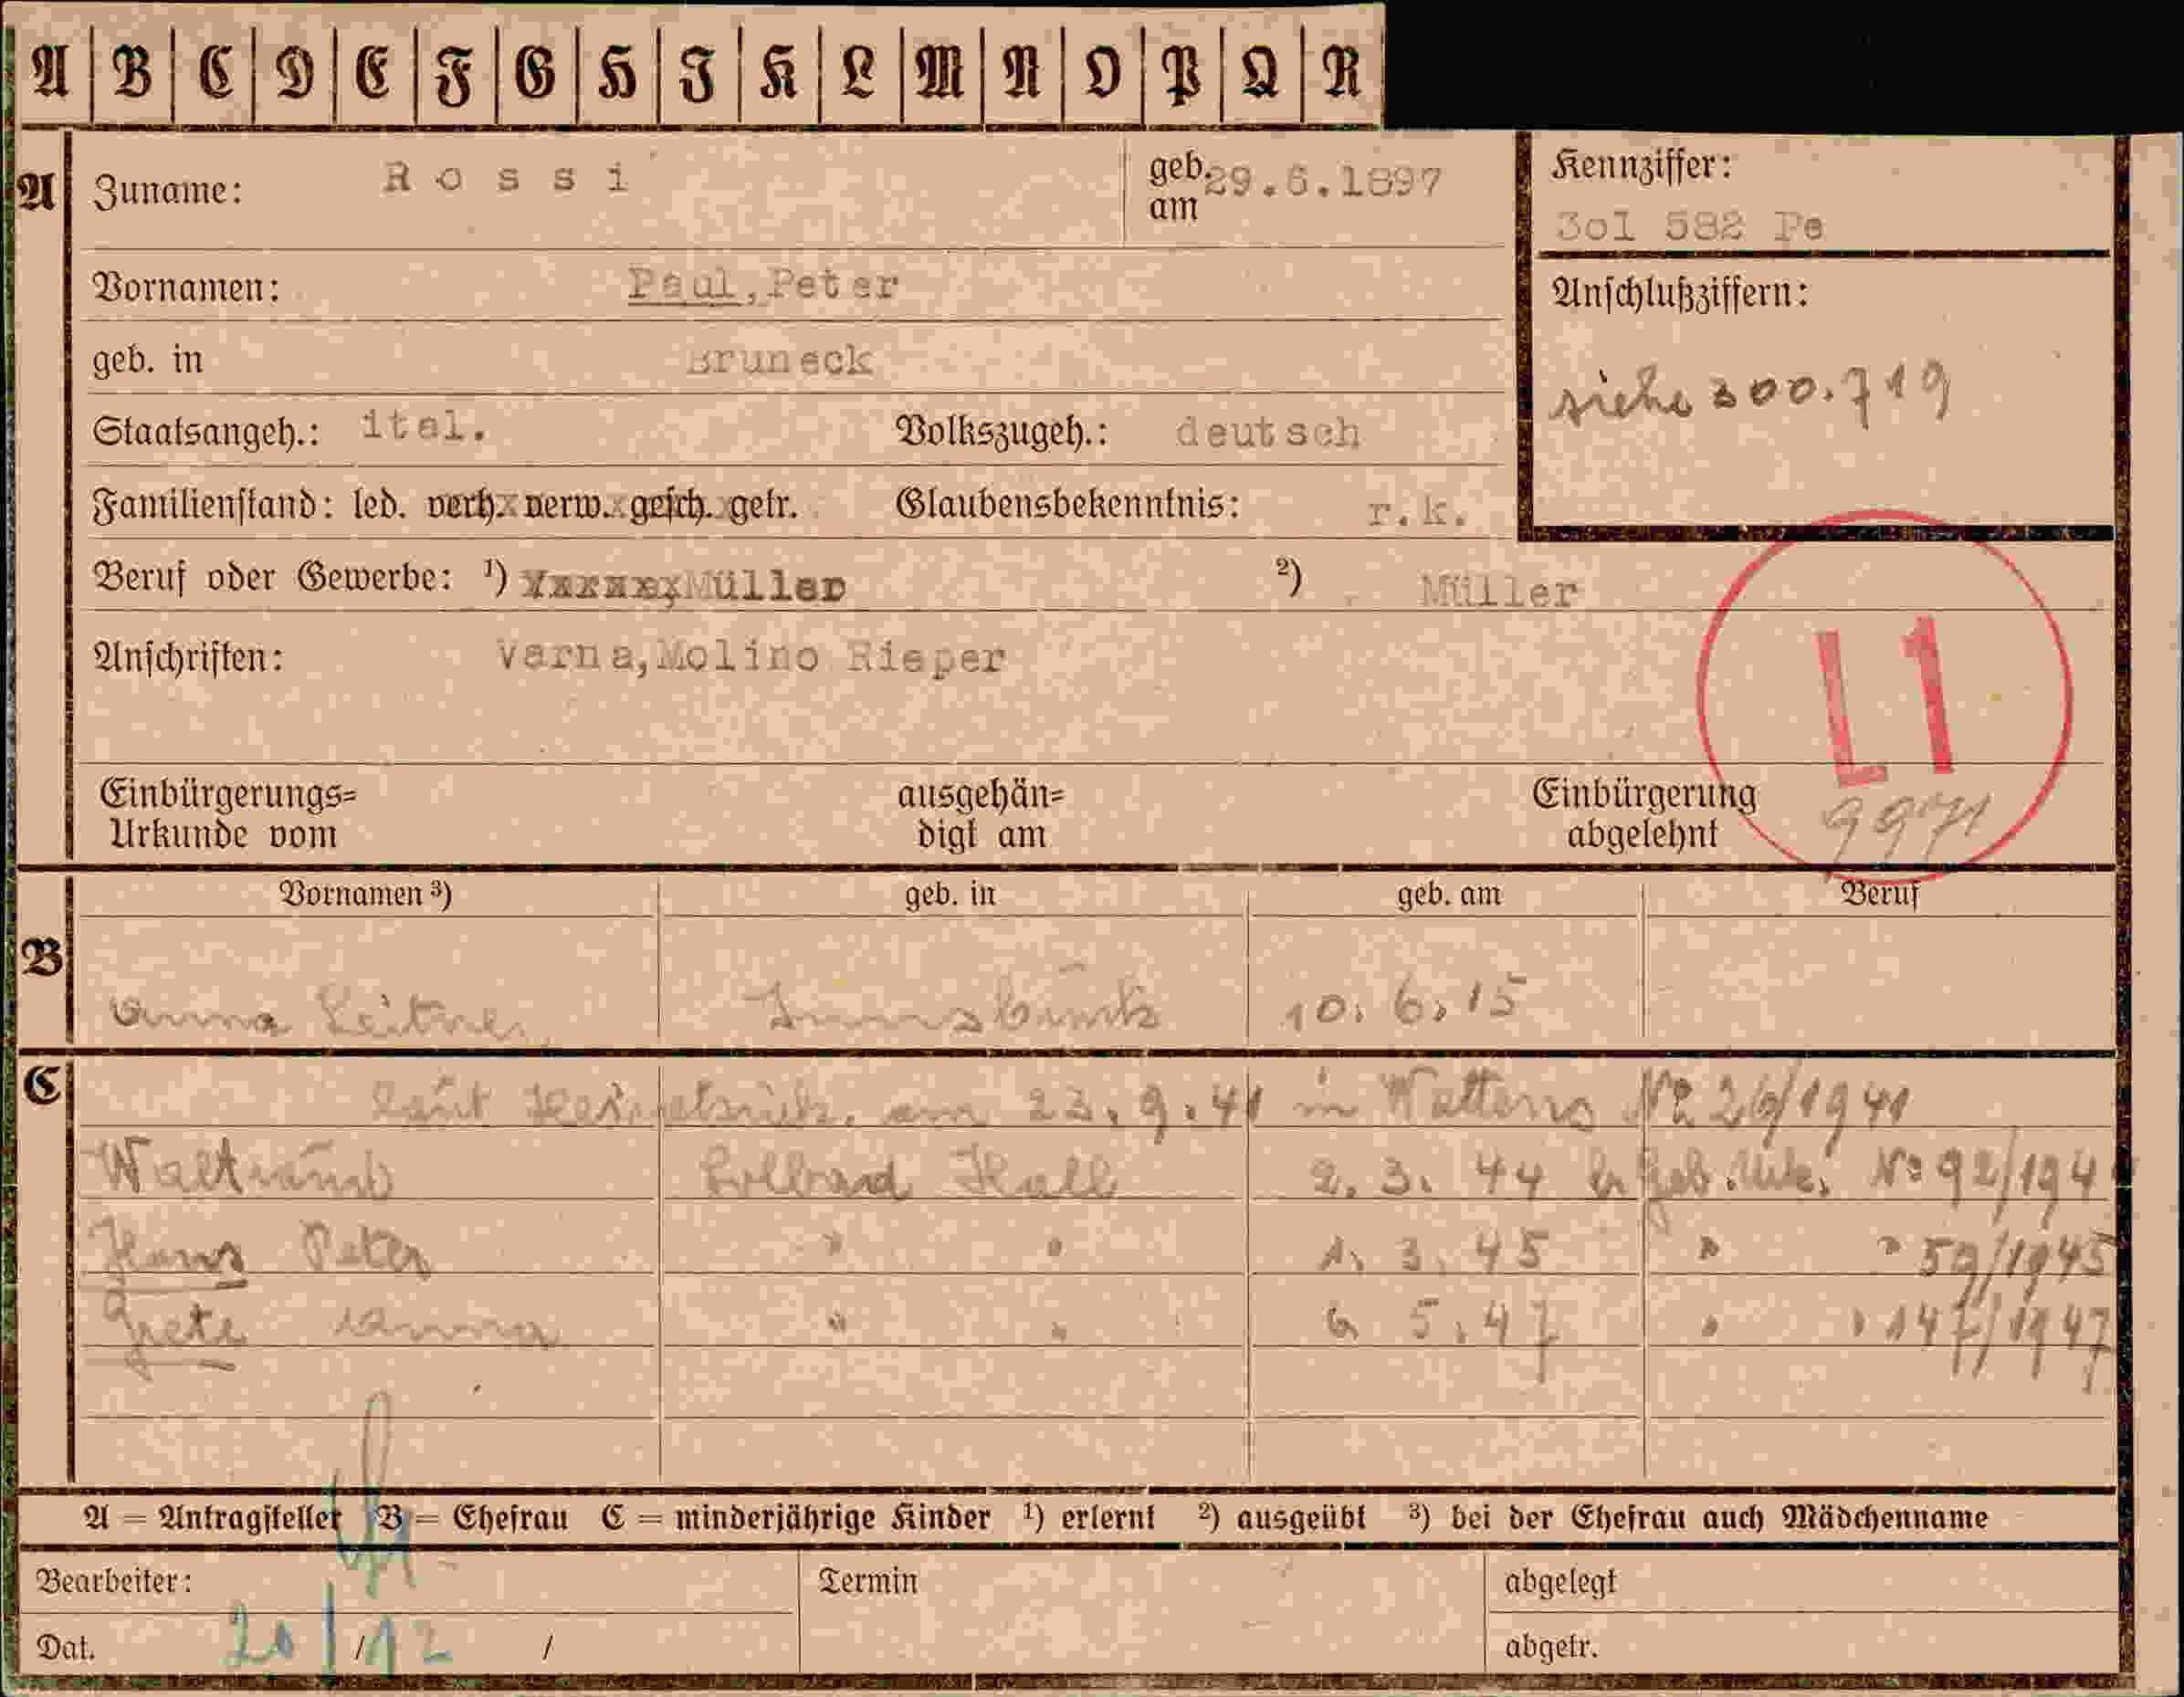 A B C D E F G H J K L M N O P Q R
A Zuname: Rossi geb. am 29.6.1897
Kennziffer:
3o1 582 Pe
Vornamen: Paul, Peter
Anschlußziffern:
siehe 300.719
geb. in Bruneck
Staatsangeh.: ital. Volkszugeh.: deutsch
Familienstand: led. verh. verw. gesch. getr. Glaubensbekenntnis: r.k.
Beruf oder Gewerbe: ¹) Müller ²) Müller
Anschriften: Varna, Molino Rieper
L1
Einbürgerungs=
Urkunde vom
ausgehän=
digt am
Einbürgerung
abgelehnt
9971
Vornamen ³) geb. in geb. am Beruf
B Anna Leitner Innsbruck 10.6.15
C laut am 23.9.41 in Wattens No 26/1941
Waltraud Solbad Hall 2. 3. 44 Geb. Urk. No 92/194
Hans Peter " " 1. 3. 45 " " 59/1945
Grete Anna " " 6 5. 47 " " 147/1947
A = Antragsteller B = Ehefrau C = minderjährige Kinder ¹) erlernt ²) ausgeübt ³) bei der Ehefrau auch Mädchenname
Bearbeiter: Termin abgelegt
Dat. 20/12 / abgetr.